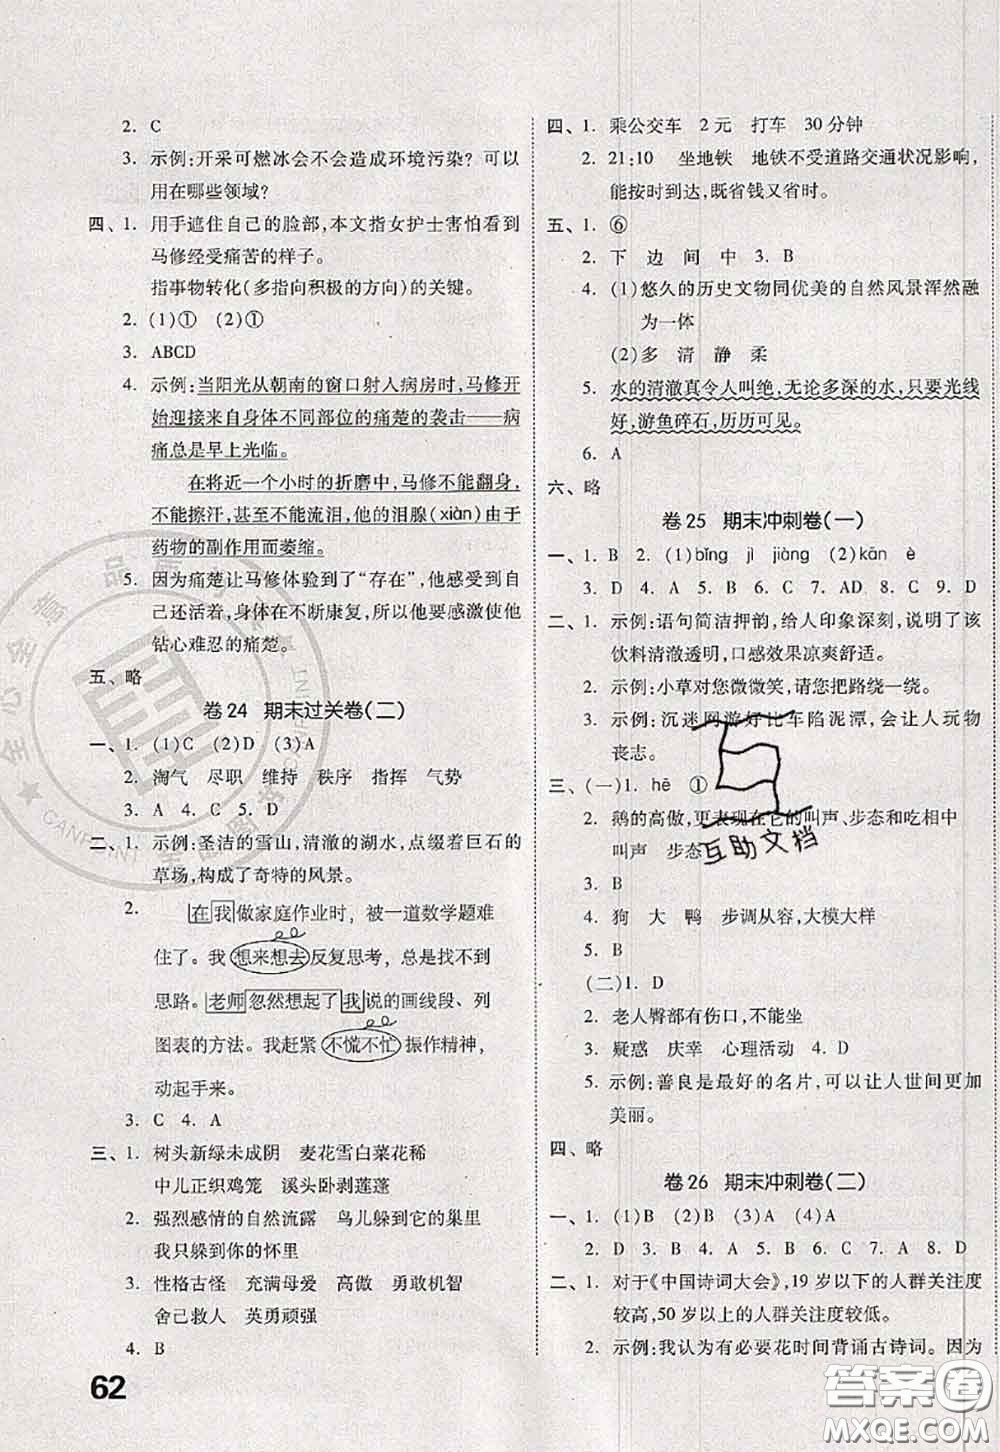 2. C
3. 示例:开采可燃冰会不会造成环境污染? 可以
用在哪些领域?
四、1. 用手遮住自己的脸部,本文指女护士害怕看到
马修经受痛苦的样子。
指事物转化(多指向积极的方向)的关键。
2. (1)① (2)①
3. ABCD
4. 示例:当阳光从朝南的窗口射入病房时,马修开
始迎接来自身体不同部位的痛楚的袭击——病
痛总是早上光临。
在将近一个小时的折磨中,马修不能翻身,
不能擦汗,甚至不能流泪,他的泪腺(xiàn)由于
药物的副作用而萎缩。
5. 因为痛楚让马修体验到了“存在”,他感受到自
己还活着,身体在不断康复,所以他感激使他
钻心难忍的痛楚。
五、略
卷 24 期末过关卷(二)
一、1. (1)C (2)D (3)A
2. 淘气 尽职 维持 秩序 指挥 气势
3. A 4. C 5. D
二、1. 示例:圣洁的雪山,清澈的湖水,点缀着巨石的
草场,构成了奇特的风景。
2. 在我做家庭作业时,被一道数学题难
住了。我想来想去反复思考,总是找不到
思路。老师忽然想起了我说的画线段、列
图表的方法。我赶紧不慌不忙振作精神,
动起手来。
3. C 4. A
三、1. 树头新绿未成阴 麦花雪白菜花稀
中儿正织鸡笼 溪头卧剥莲蓬
2. 强烈感情的自然流露 鸟儿躲到它的巢里
我只躲到你的怀里
3. 性格古怪 充满母爱 高傲 勇敢机智
舍己救人 英勇顽强
4. B
62
四、1. 乘公交车 2 元 打车 30 分钟
2. 21:10 坐地铁 地铁不受道路交通状况影响,
能按时到达,既省钱又省时。
五、1. ⑥
2. 下 边 间 中 3. B
4. (1)悠久的历史文物同优美的自然风景浑然融
为一体
(2)多 清 静 柔
5. 水的清澈真令人叫绝,无论多深的水,只要光线
好,游鱼碎石,历历可见。
6. A
六、略
卷 25 期末冲刺卷(一)
一、1. B 2. (1)bǐng jì jiàng (2)kān è
3. D 4. A 5. B 6. C 7. AD 8. C 9. D
二、1. 示例:语句简洁押韵,给人印象深刻,说明了该
饮料清澈透明,口感效果凉爽舒适。
2. 示例:小草对您微微笑,请您把路绕一绕。
3. 示例:沉迷网游好比车陷泥潭,会让人玩物
丧志。
三、(一)1. hē ①
2. 鹅的高傲,更表现在它的叫声、步态和吃相中
叫声 步态
3. B
4. 狗 大 鸭 步调从容,大模大样
5. B
(二)1. D
2. 老人臀部有伤口,不能坐
3. 疑惑 庆幸 心理活动 4. D
5. 示例:善良是最好的名片,可以让人世间更加
美丽。
四、略
卷 26 期末冲刺卷(二)
一、1. (1)B (2)B (3)A (4)A
2. D 3. B 4. D 5. C 6. C 7. A 8. D
二、1. 对于《中国诗词大会》,19 岁以下的人群关注度
较高,50 岁以上的人群关注度较低。
2. 示例:我认为有必要花时间背诵古诗词。因为
互助文档
答案圈
MXQE.COM